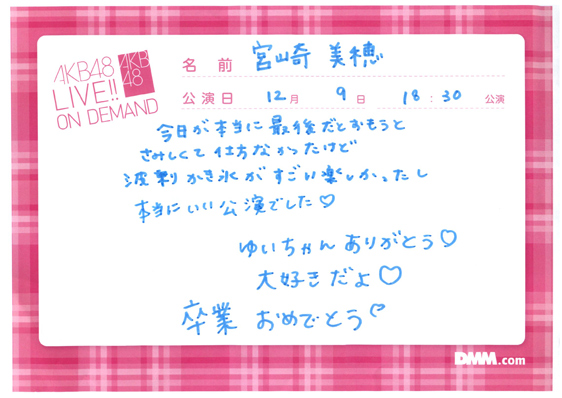 AKB48
LIVE!!
ON DEMAND
AKB
48
名前 宮崎 美穂
公演日 12月 9日 18:30 公演
今日が本当に最後だとおもうと
さみしくて仕方なかったけど
波乗りかき氷がすごい楽しかったし
本当にいい公演でした♡
ゆいちゃんありがとう♡
大好きだよ♡
卒業 おめでとう♡
DMM.com